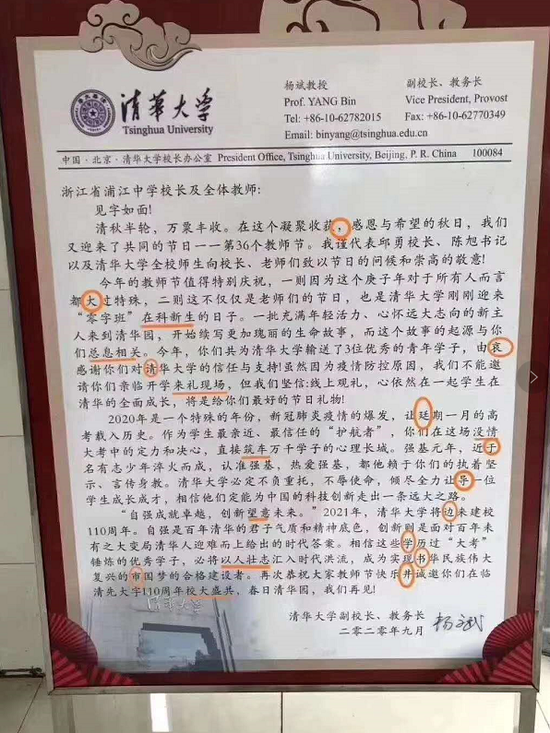 清華大学
Tsinghua University
杨斌教授
Prof. YANG Bin
Tel: +86-10-62782015
Email: binyang@tsinghua.edu.cn
副校长、教务长
Vice President, Provost
Fax: +86-10-62770349
中国·北京·清华大学校长办公室 President Office, Tsinghua University, Beijing, P. R. China 100084
浙江省浦江中学校长及全体教师:
见字如面!
清秋半轮，万粟丰收。在这个凝聚收获，感恩与希望的秋日，我们
又迎来了共同的节日一一第36个教师节。我谨代表邱勇校长、陈旭书记
以及清华大学全校师生向校长、老师们致以节日的问候和崇高的敬意!
今年的教师节值得特别庆祝，一则因为这个庚子年对于所有人而言
都大过特殊，二则这不仅仅是老师们的节日，也是清华大学刚刚迎来
“零字班”在科新生的日子。一批充满年轻活力、心怀远大志向的新主
人来到清华园，开始续写更加瑰丽的生命故事，而这个故事的起源与你
们总息相关。今年，你们共为清华大学输送了3位优秀的青年学子，由哀
感谢你们对清华大学的信任与支持!虽然因为疫情防控原因，我们不能邀
请你们亲临开学来礼现场，但我们坚信:线上观礼，心依然在一起学生在
清华的全面成长，将是给你们最好的节日礼物!
2020年是一个特殊的年份，新冠肺炎疫情的爆发，让廷期一月的高
考载入历史。作为学生最亲近、最信任的“护航者”，你们在这场没情
大考中的定力和决心，直接筑车万千学子的心理长城。强基元年，近于
名有志少年淬火而成，认准强基，热爱强基，都他赖于你们的执着坚
示、言传身教。清华大学必定不负重托，不辱使命，倾尽全力让导一位
学生成长成才，相信他们定能为中国的科技创新走出一条远大之路。
“自强成就卓越，创新望意未来。”2021年，清华大学将边来建校
110周年。自强是百年清华的君子气质和精神底色，创新则是面对百年未
有之大变局清华人迎难而上给出的时代答案。相信这些学历过“大考”
锤炼的优秀学子，必将以人壮志汇入时代洪流，成为实现书华民族伟大
复兴的市国梦的合格建设者。再次恭祝大家教师节快乐井诚邀你们在临
清先大字110周年校大盛共，春日清华园，我们再见!
清华大学副校长、教务长
二零二零年九月
杨斌